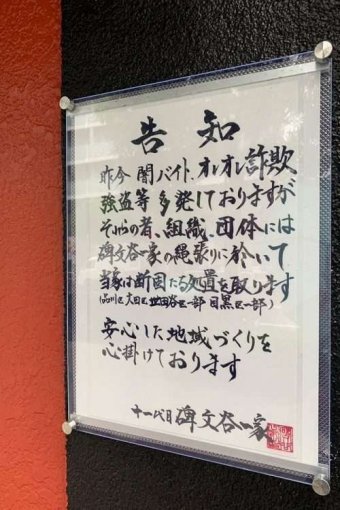 告知
昨今 闇バイト、オレオレ詐欺
強盗等 多発しておりますが
その者、組織、団体には
碑文谷一家の縄張りに於いて
当家は断固たる処置を取ります
(品川区 大田区 世田谷区一部 目黒区一部)
安心した地域づくりを
心掛けております
十一代目 碑文谷一家